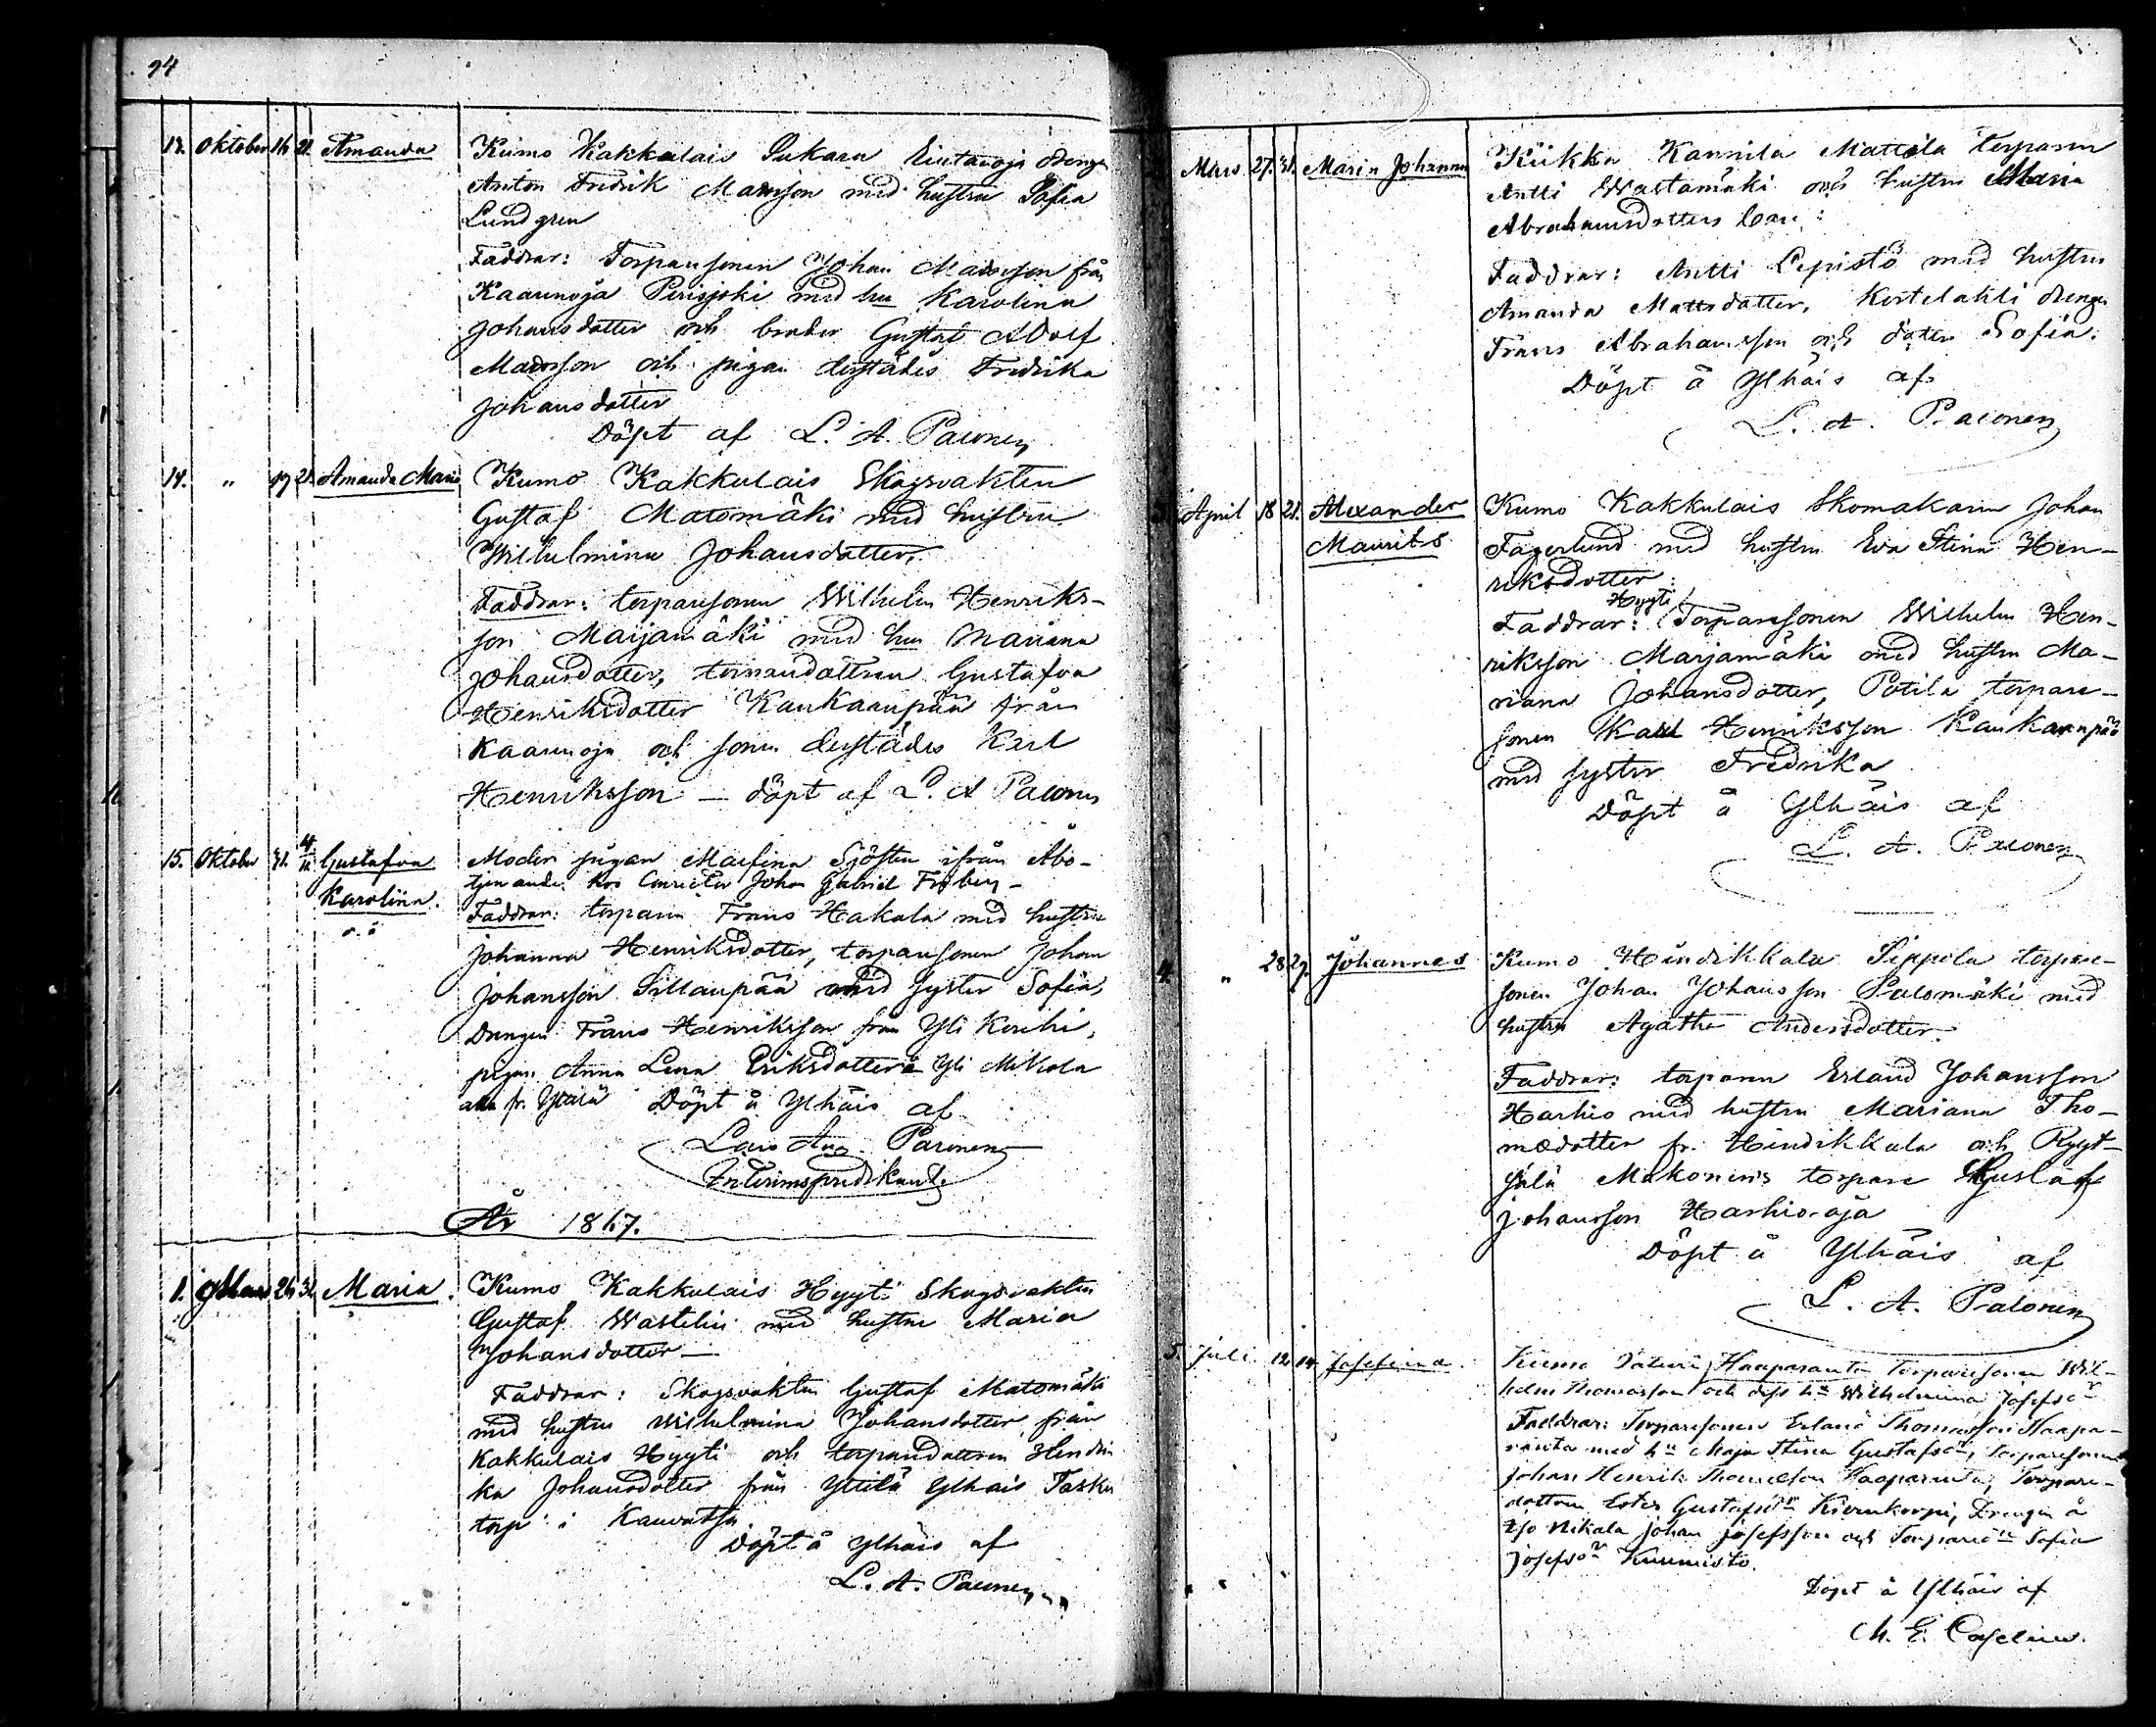 94
13. Oktober 16 21. Amanda Kumo Kakkulais Pukara Eintanoja Drengen
Anton Fredrik Matsson med hustru Sofia
Lundgren
Faddrar: Torparesonen Johan Matsson från
Kaarenoja med hu Karolina
Johansdotter och broder Gustaf Adolf
Matsson och pigan derstädes Fredrika
Johansdotter
Döpt af L. A. Palonen
14. " 19 21. Amanda Maria Kumo Kakkulais Skogsvakten
Gustaf Matomäki med hustru
Wilhelmina Johansdotter.
Faddrar: torparesonen Wilhelm Henriks-
son Marjamäki med hu Mariana
Johansdotter, torparedottren Gustafva
Henriksdotter Kaukaanpää från
Kaarenoja och sonen derstädes Karl
Henriksson – döpt af L. A. Palonen
15. Oktober 31. 4/11 Gustafva Moder pigan Maifina Sjösten ifrån Åbo-
Karolina. tjenande hos Johan Gabriel
o. ä
Faddrar: torparen Frans Hakala med hustru
Johanna Henriksdotter, torparesonen Johan
Johansson Sillanpää med syster Sofia,
Drengen Frans Henriksson från Yli Kerihi,
pigan Anna Lena Eriksdotter å Yli Mikola
alla fr. Yttilä Döpt å Ylhäis af
Lars Aug. Palonen
Interimspredikant.
År 1867.
1. Mars 26 31. Maria. Kumo Kakkulais Hyyti Skogsvakten
Gustaf Wastelin med hustru Maria
Johansdotter –
Faddrar: Skogsvakten Gustaf Matomäki
med hustru Wilhelmina Johansdotter från
Kakkulais Hyyti och torparedottren Hendri
ka Johansdotter från Yttilä Ylhäis Tasku
torp i Kauvatsa.
Döpt å Ylhäis af
L. A. Palonen
Mars 27. 31. Maria Johanna Kiikka Kannila Mattila torparen
Antti Wastamäki och hustru Maria
Abrahamsdotters barn:
Faddrar: Antti Lepistö med hustru
Amanda Mattsdotter, Kertelahti drengen
Frans Abrahamsson och dotter Sofia.
Döpt å Ylhäis af
L. A. Palonen
3. April 18 21. Alexander Kumo Kakkulais Skomakaren Johan
Maurits Fagerlund med hustru Eva Stina Hen-
riksdotter:
Hyyti
Faddrar: Torparesonen Wilhelm Hen-
riksson Marjamäki med hustru Ma-
riana Johansdotter, Potila torpare-
sonen Karl Henriksson Kaukaanpää
med syster Fredrika
Döpt å Ylhäis af
L. A. Palonen
4. " 28 29. Johannes Kumo Hindikkala Sippola torpare-
sonen Johan Johansson Salomäki med
hustru Agatha Andersdotter.
Faddrar: torparen Erland Johansson
Harhio med hustru Mariana Tho-
mædotter fr. Hindikkala och Ryyt-
sälä Makonens torpare Gustaf
Johansson Harhio-oja
Döpt å Ylhäis af
L. A. Palonen
5. Juli 12 14. Josefina. Kumo Haaparanta torparesonen Wil-
helm Thomasson och dess hu Wilhelmina Josefsdr
Faddrar: Torparesonen Erland Thomasson Haapa-
ranta med hu Maja Stina Gustafsdr, torparesonen
Johan Henrik Thomasson Haaparanta, Torpare-
dottren Gustafsdr, Drengen å
Iso Mikola Johan Josefsson och Torparedn Sofia
Josefsdr Kuumisto.
Döpt å Ylhäis af
M. E. Caselius.